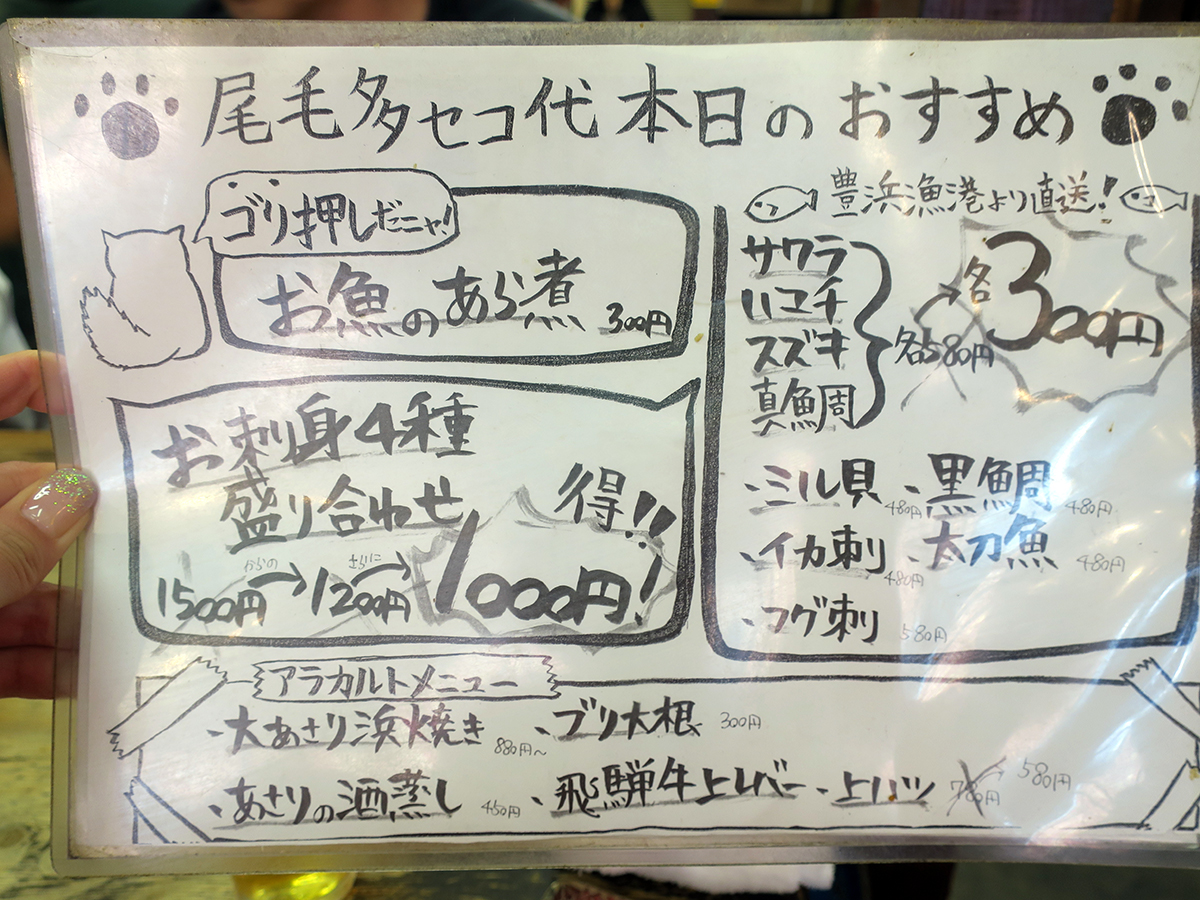 尾毛多セコ代 本日のおすすめ
ゴリ押しだニャ!
お魚のあら煮 300円
お刺身4種
盛り合わせ 得!!
1500円 からの→ 1200円 さらに→ 1000円!
豊浜漁港より直送!
サワラ
ハコチ
スズキ
真鯛
各580円 → 各300円
・ミル貝 480円 ・黒鯛 480円
・イカ刺 480円 ・太刀魚 480円
・コグ刺 580円
アラカルトメニュー
・大あさり浜焼き 880円~ ・ブリ大根 300円
・あさりの酒蒸し 450円 ・飛騨牛上レバー・上ハツ 780円 580円